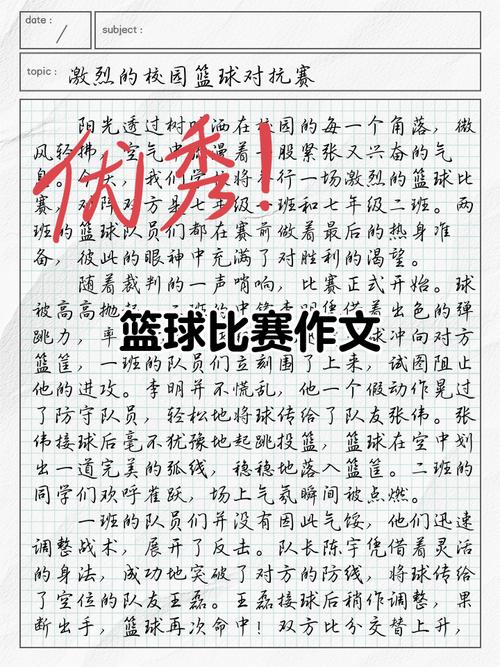 date :
subject :
topic : 激烈的校园篮球对抗赛
阳光透过树 洒在校园的每一个角落，微
风轻拂，空气中 漫着 股紧张又兴奋的气
我们学校将举行一场激烈的篮球比
赛，对阵双方是七年级一班和七年级二班。两
班的篮球队员们都在赛前做着最后的热身准
备，彼此的眼神中充满了对胜利的渴望。
随着裁判的一声哨响，比赛正式开始。球
被高高抛起 出色的弹
跳力，率 球冲向对方
篮筐，一班的队员们立刻围了上来，试图阻止
他的进攻。李明并不慌乱，他一个假动作晃过
了防守队员，轻松地将球传给了队友张伟。张
伟接球后毫不犹豫地起跳投篮，篮球在空中划
出一道完美的弧线，稳稳地落入篮筐。二班的
同学们欢呼雀跃，场上气氛瞬间被点燃。
一班的队员们并没有因此气馁，他们迅速
调整战术，展开了反击。队长陈宇凭借着灵活
的身法，成功地突破了对方的防线，将球传给
了空位的队友王磊。王磊接球后稍作调整，果
断出手，篮球再次命中！双方比分交替上升，
优秀！
篮球比赛作文